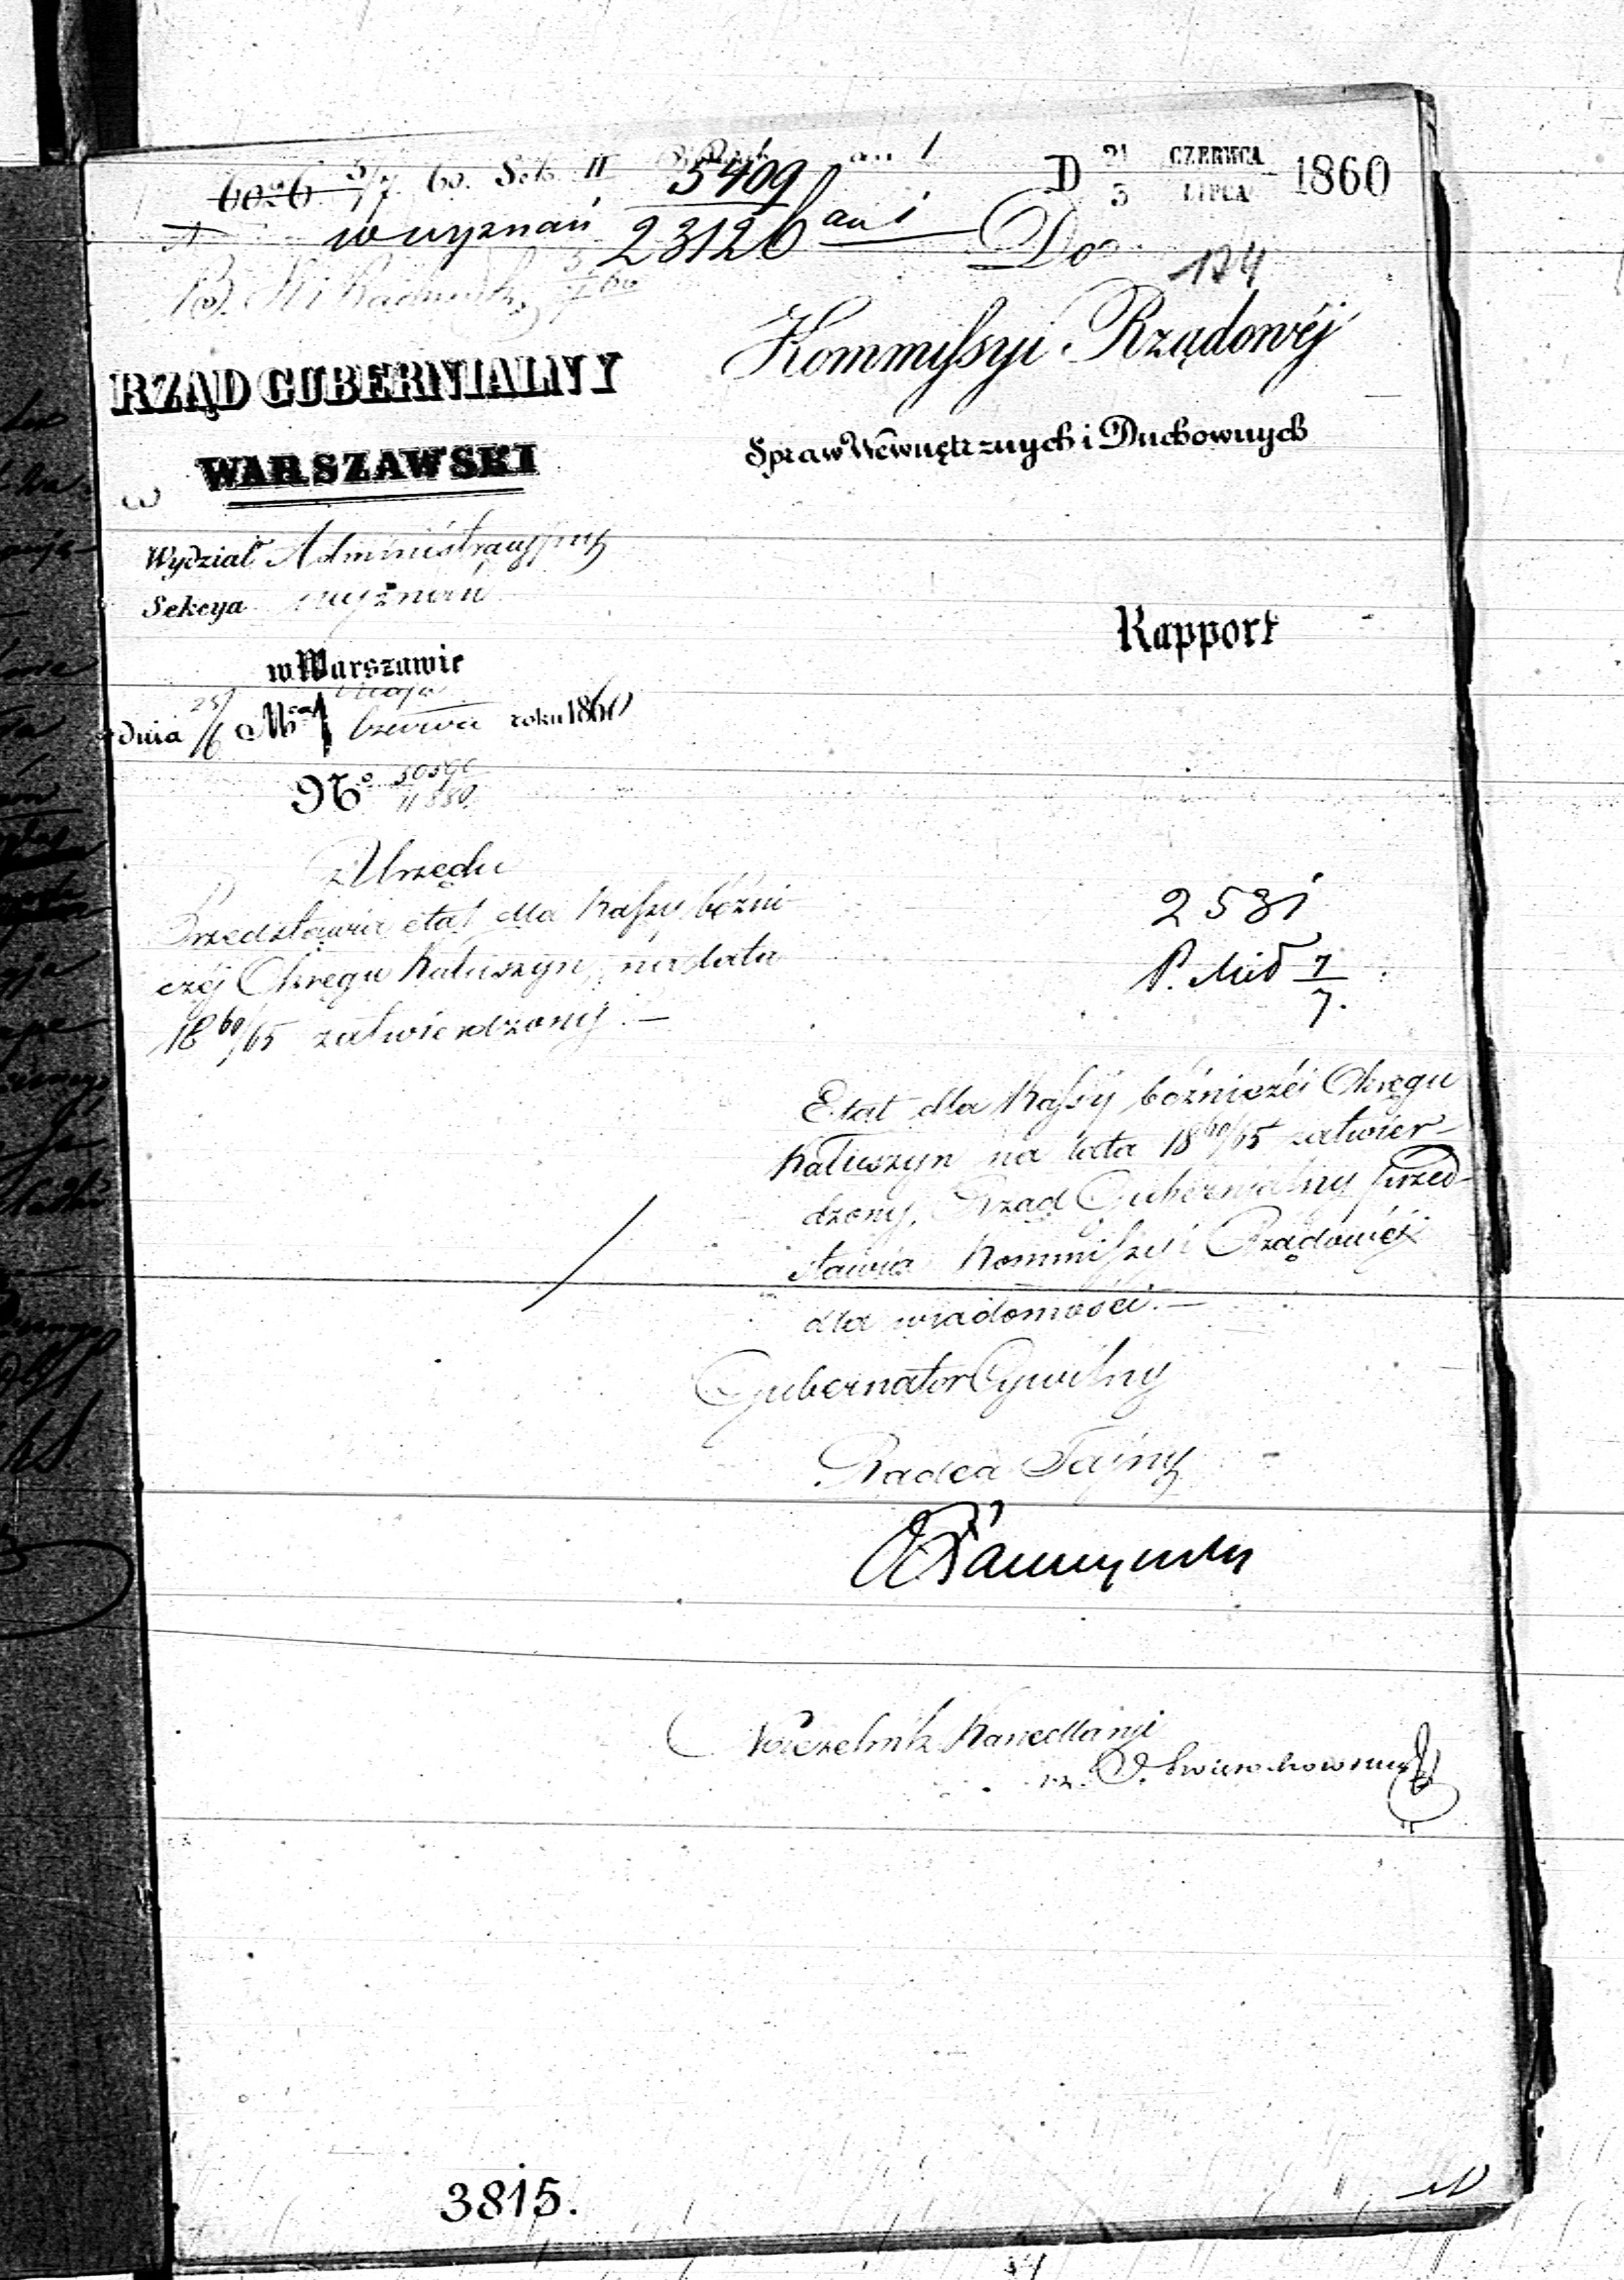 6026 5/7 60. Sek. II 5409 an 1
D 21/3 CZERWCA/LIPCA 1860
wyznań 23126 an 1
Do
174
Kommissyi Rządowéj
Spraw Wewnętrznych i Duchownych
RZĄD GUBERNIALNY
WARSZAWSKI
Wydział Administracyjny
Sekcya wyznań
w Warszawie
dnia Mca Maja/Czerwca roku 1860
No
Rapport
z Urzędu
Przedstawia etat dla Kassy bóżni-
czéj Okręgu Kałuszyn, na lata
1860/65 zatwierdzony. —
2531
7/7.
Etat dla Kassy bóżniczéi Okręgu
Kałuszyn na lata 1860/65 zatwier-
dzony, Rząd Gubernialny przed-
stawia Kommissyi Rządowéj
dla wiadomości. —
Gubernator Cywilny
Radca Tajny
Naczelnik Kancellaryi
3815.